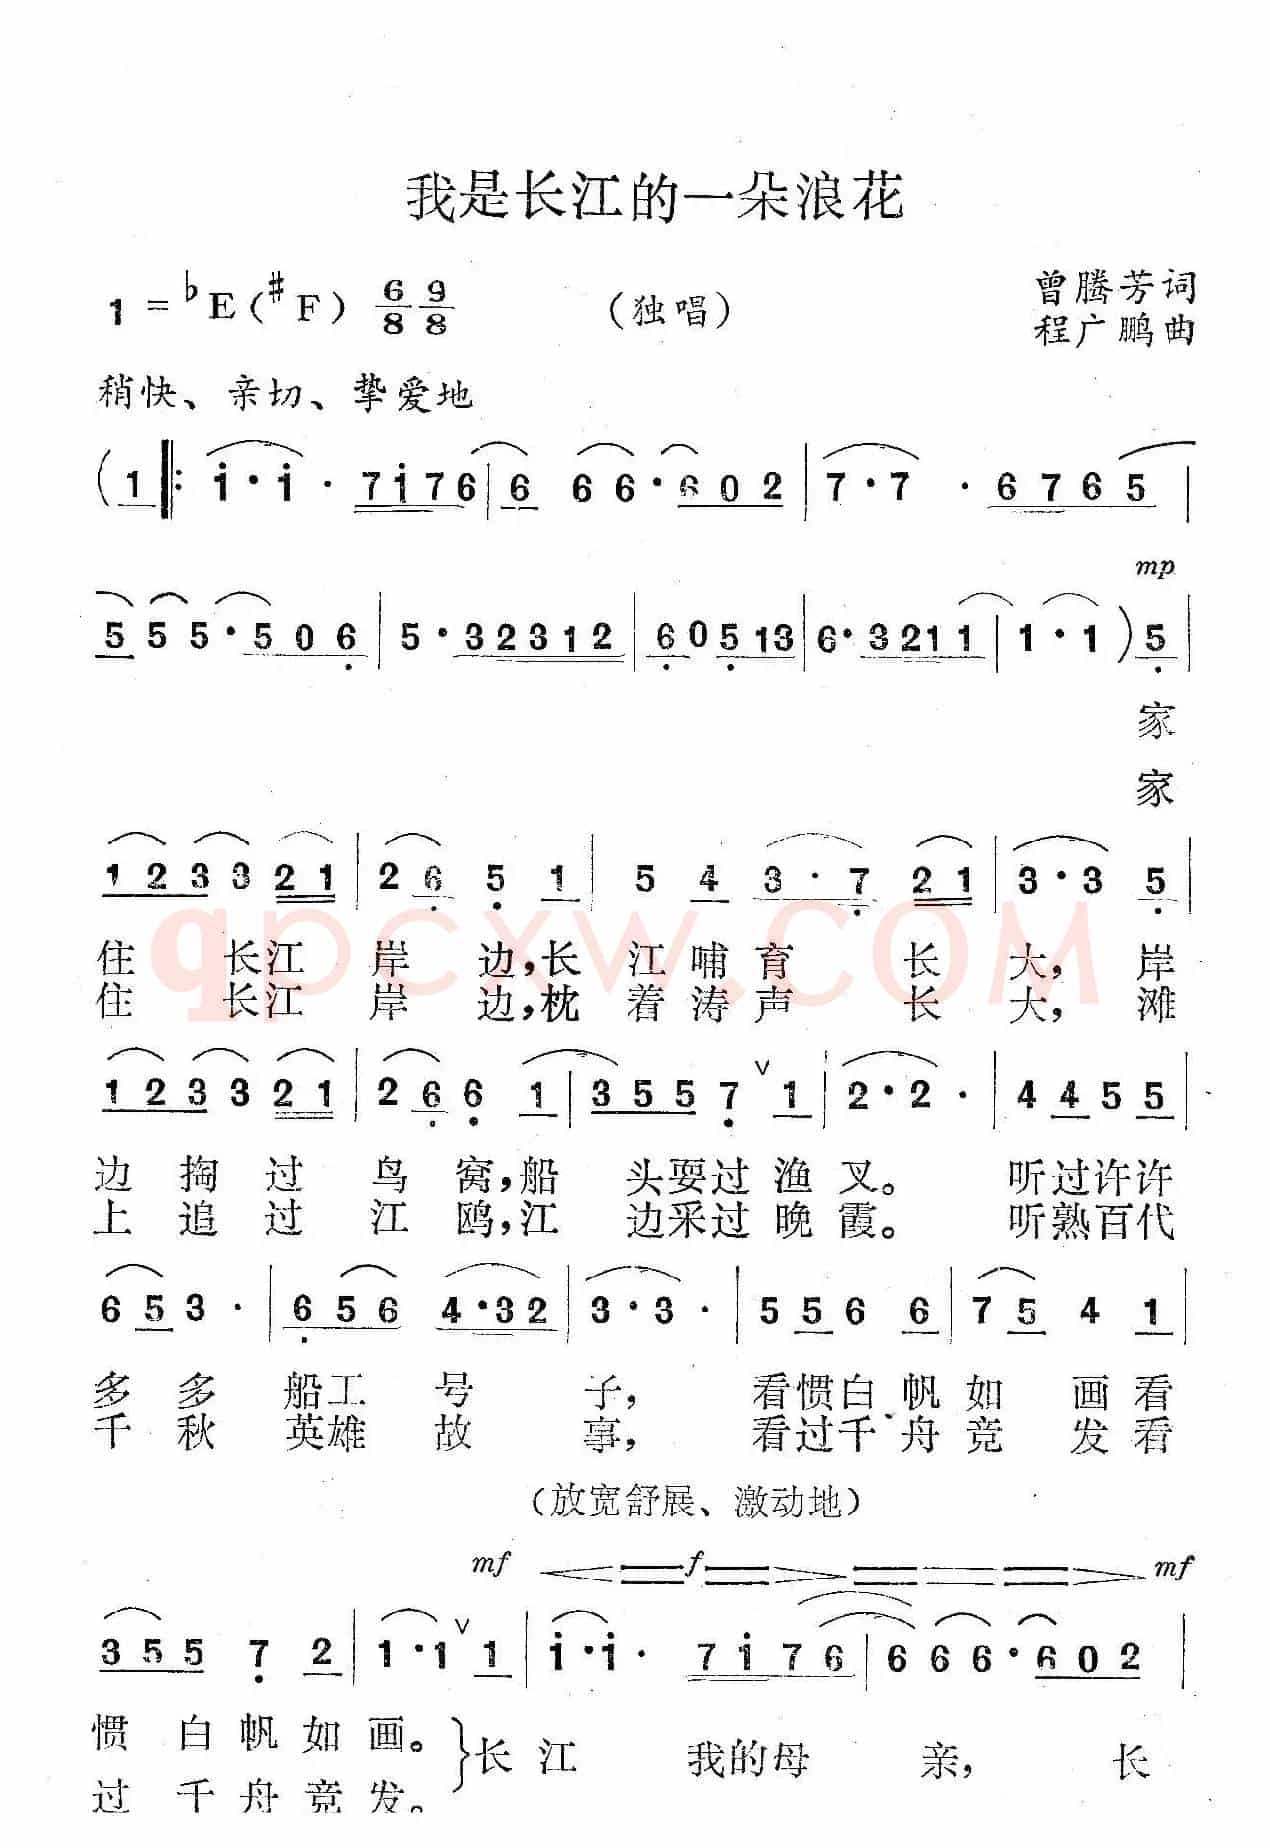 我是长江的一朵浪花
1=♭E(♯F) 6/8 9/8 (独唱) 曾腾芳词
程广鹏曲
稍快、亲切、挚爱地
(1 ‖: i·i· 7i76 | 6 66·602 | 7·7· 6765 |
mp
555·506 | 5·32312 | 60513 | 6·3211 | 1·1) 5 |
家
家
1233 21 | 26 5 1 | 5 4 3·7 21 | 3·3 5 |
住 长江 岸 边,长 江 哺 育 长 大, 岸
住 长江 岸 边,枕 着 涛 声 长 大, 滩
qpcxw.COM
1233 21 | 26 6 1 | 355 7 ∨ 1 | 2·2· 44 55 |
边 掏 过 鸟 窝,船 头耍过 渔 叉。 听过许许
上 追 过 江 鸥,江 边采过 晚 霞。 听熟百代
6 5 3· | 6 56 4·32 | 3·3· | 556 6 | 75 4 1 |
多 多 船工 号 子, 看惯白 帆 如 画 看
千 秋 英雄 故 事, 看过千 舟 竞 发 看
(放宽舒展、激动地)
mf f mf
355 7 2 | 1·1 ∨ 1 | i·i· 7i76 | 666·602 |
惯 白 帆 如 画。 长 江 我的母 亲, 长
过 千 舟 竞 发。